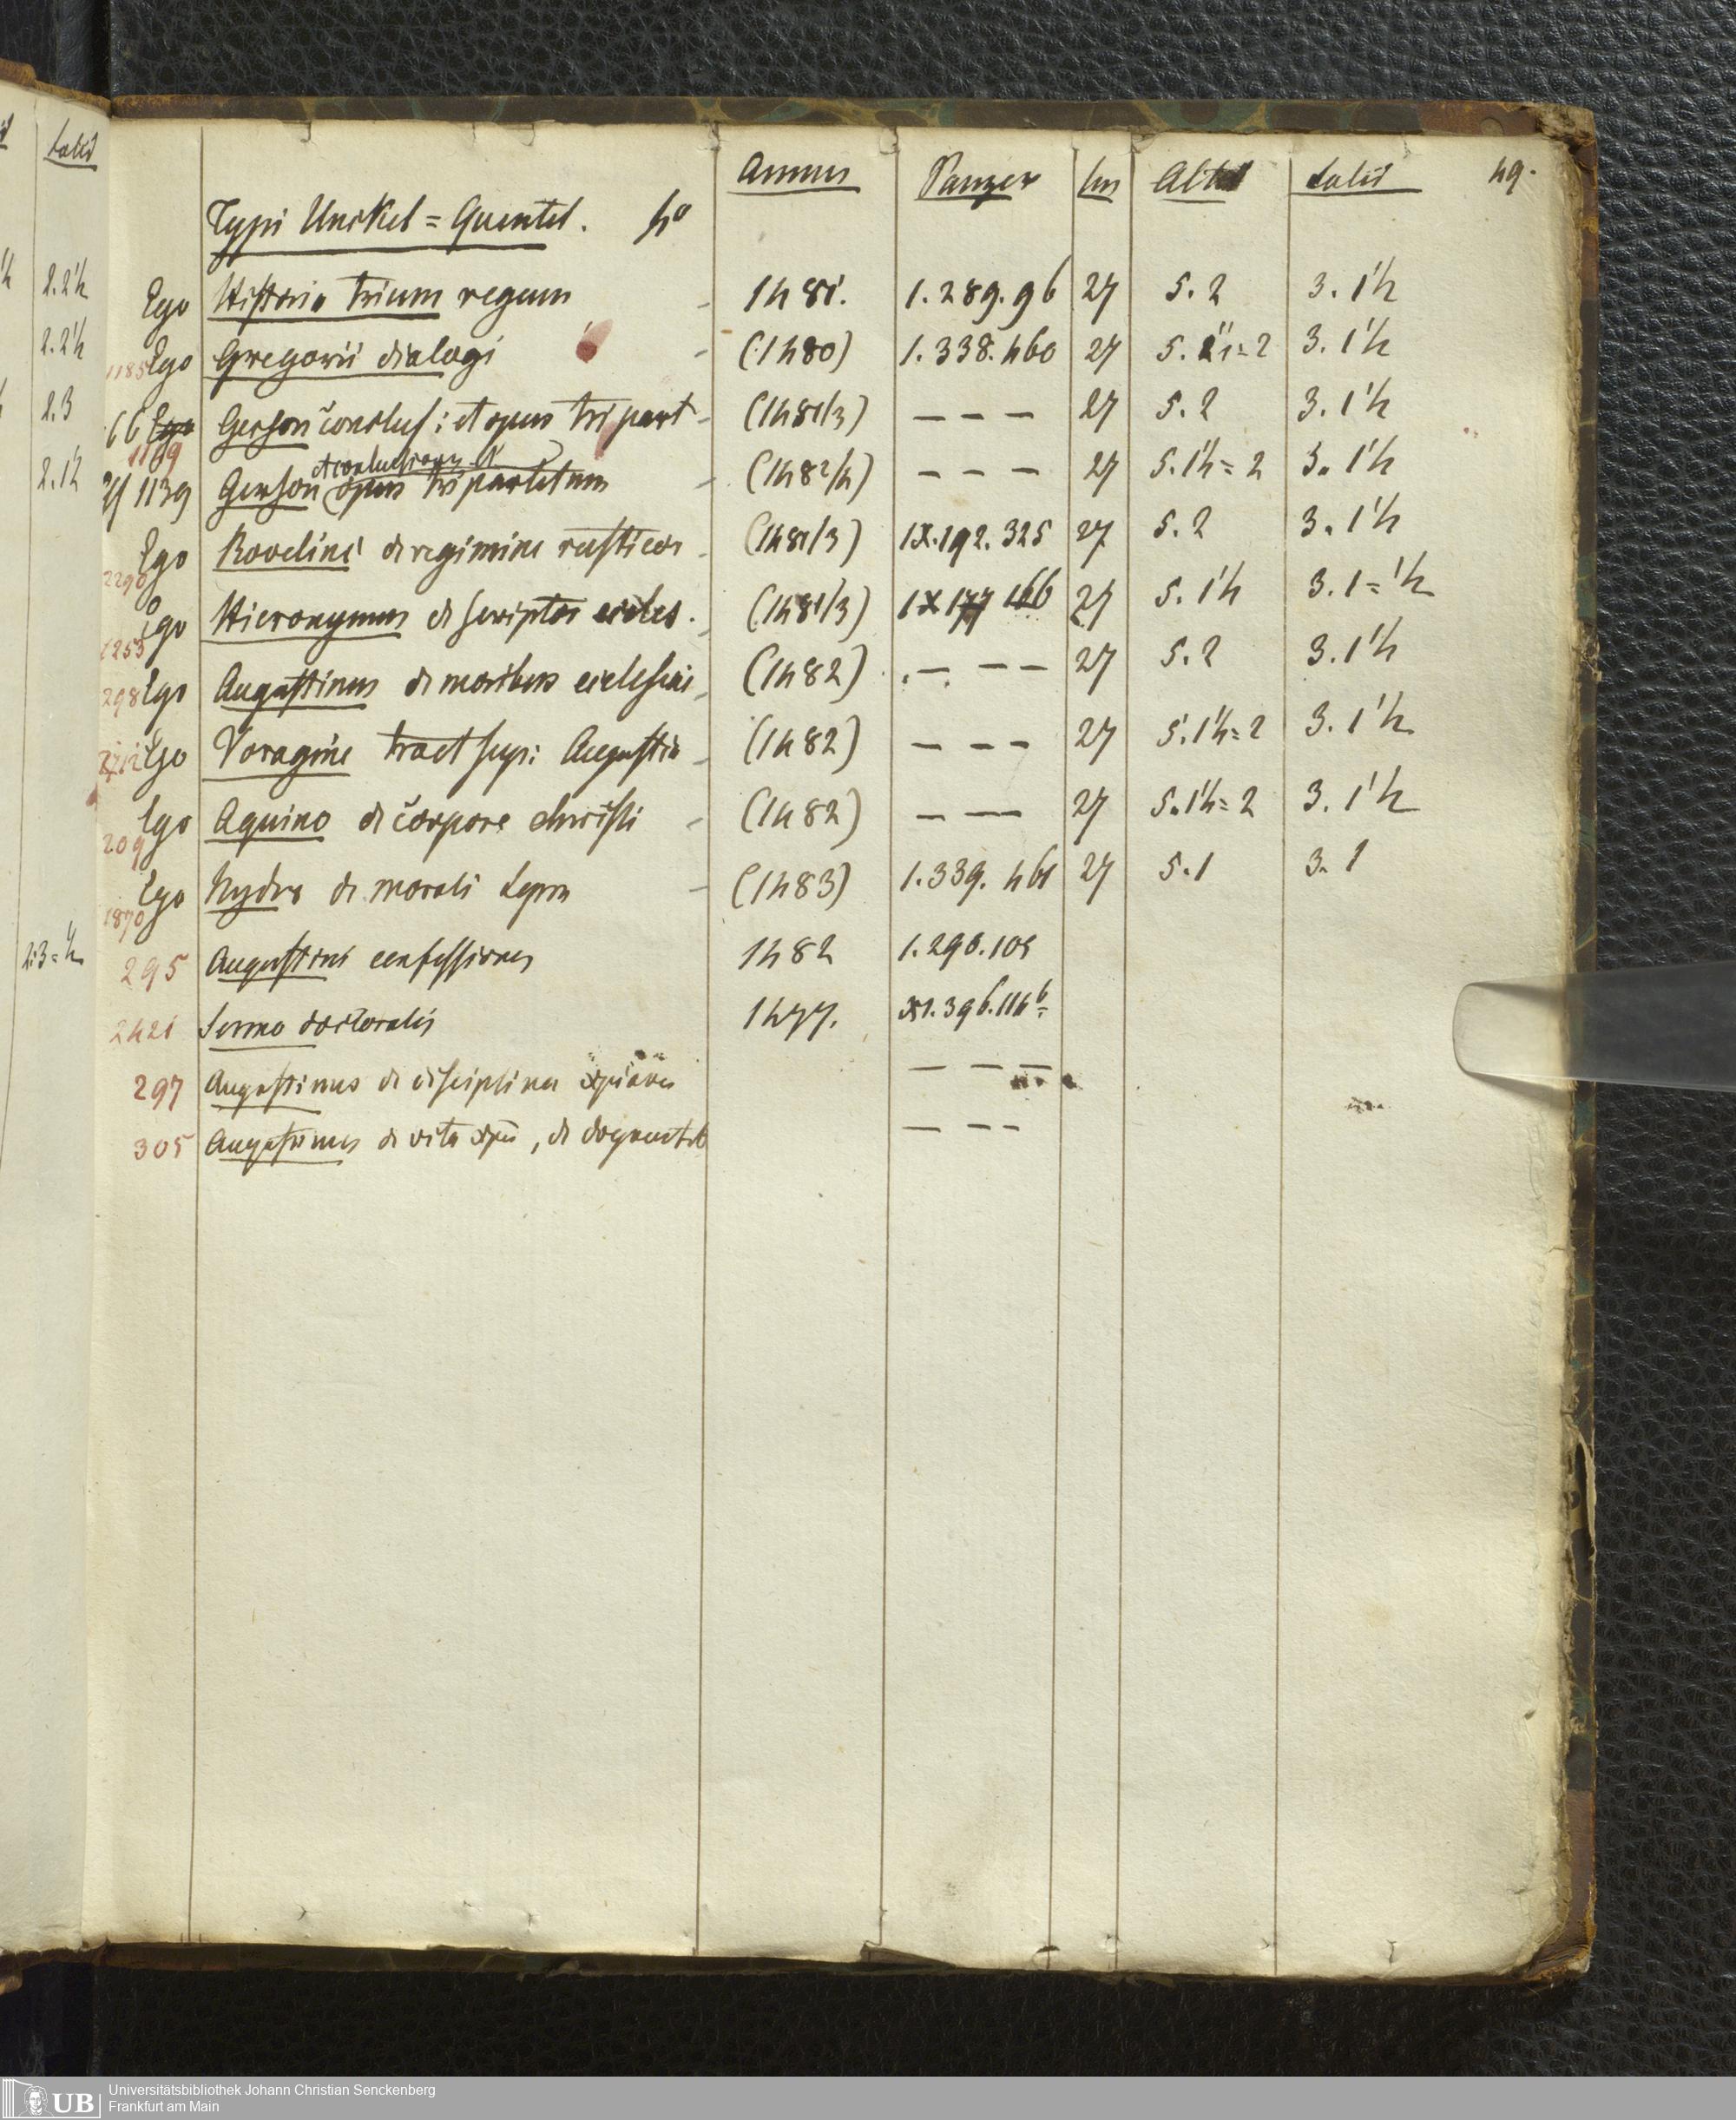 latit
Annus Panzer lin Altit Latit 49.
Typi Unckel = Quentel. 4°
2.2½
Ego Historia trium regum - 1481. 1.289.96 27 5.2 3.1½
2.2½
1185 Ego Gregorii dialogi - (1480) 1.338.460 27 3.1½
2.3
66 Ego Gerson conclus: et opus tripart - (1481/3) — — — 27 5.2 3.1½
1169
et conclusiones
2.1½
1139 Gerson opus tripartitum - (1482/4) — — — 27 5.1½=2 3.1½
Ego Rovelini di regimine rusticor - (1481/3) IX.192.325 27 5.2 3.1½
2290
Ego Hieronymus di scriptor eccles. - (1481/3) IX 177 166 27 5.1½ 3.1=½
1253
298 Ego Augustinus di moribus ecclesiae - (1482) — — — 27 5.2 3.1½
Ego Voragine tract sup: Augustin - (1482) — — — 27 5.1½=2 3.1½
Ego Aquino di corpore christi - (1482) — — 27 5.1½=2 3.1½
209
Ego Nyder di morali Lepra - (1483) 1.339.461 27 5.1 3.1
1870
2.3=½
295 Augustini confessiones 1482 1.290.105
2421 Sermo doctoralis 1477. XI.396.114b=
297 Augustinus di disciplina xpiana — — —
305 Augustinus di vita xpi, di dogmatib — — —
UB Universitätsbibliothek Johann Christian Senckenberg
Frankfurt am Main